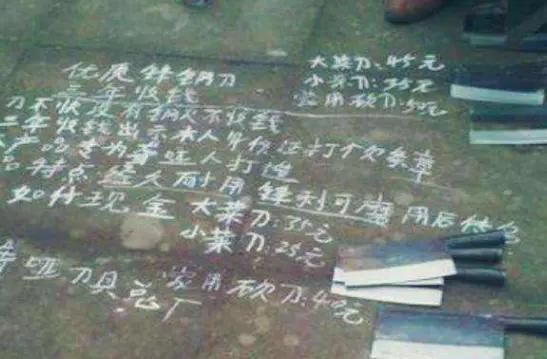 优质锋钢刀
大菜刀:45元
三年收钱
小菜刀:35元
家用砍刀:50元
刀不快没有钢火不收钱
三年收钱出示本人身份证打欠条章
产品专为普通人打造
特点经久耐用锋利可磨用后
如付现金大菜刀:35元
小菜刀:25元
刀具总厂 家用砍刀:40元